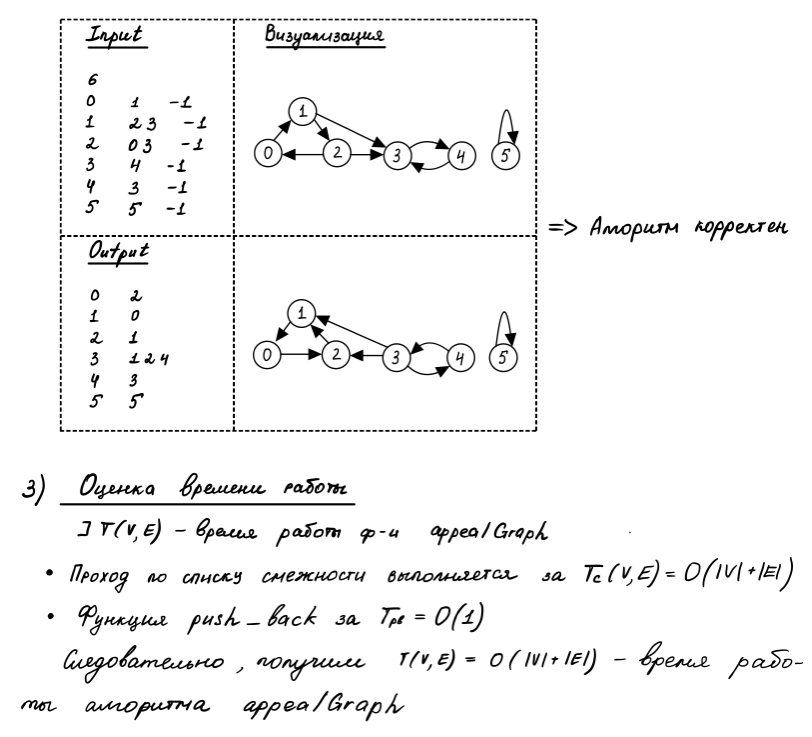 Input
6
0 1 -1
1 2 3 -1
2 0 3 -1
3 4 -1
4 3 -1
5 5 -1
Визуализация
1
0 2 3 4 5
Output
0 2
1 0
2 1
3 1 2 4
4 3
5 5
1
0 2 3 4 5
=> Алгоритм корректен
3) Оценка времени работы
∃ T(V,E) – время работы ф-и appealGraph
• Проход по списку смежности выполняется за Tc(V,E) = O(|V|+|E|)
• Функция push_back за Tpb = O(1)
Следовательно, получим T(V,E) = O(|V|+|E|) – время рабо-
ты алгоритма appealGraph